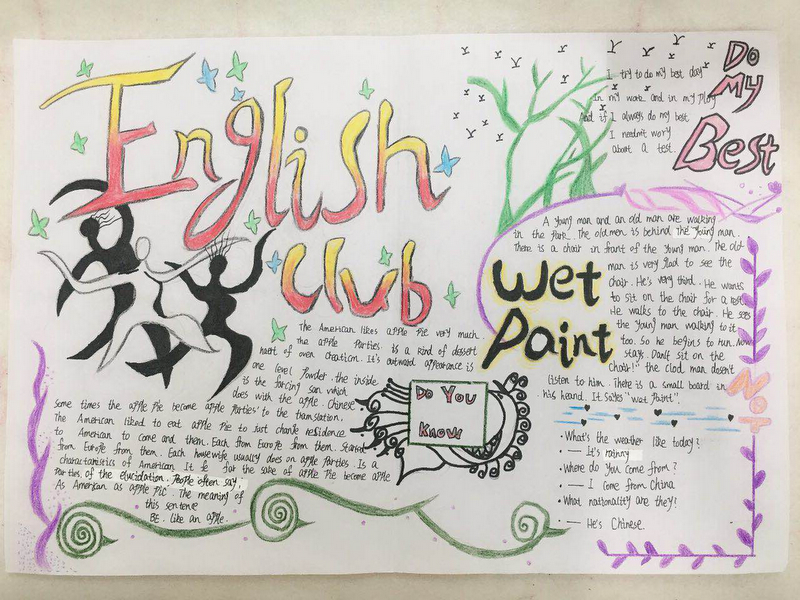 English
Club
Do
My
Best
I try to do my best day
In my work and in my play
And if I always do my best
I needn't wory
about a test.
A young man and an old man are walking
in the Park. The old men is behind the young man.
There is a chair in front of the young man. The old
man is very glad to see the
chair. He's very third. He wants
to sit on the chair for a rest.
He walks to the chair. He sees
the young man walking to it
too. So he begins to run. Now
stay. Don't sit on the
chair!" the clod man doesn't
listen to him. There is a small board in
his heard. It sates "wet paint".
Wet
Paint
Not
The American likes apple Pie very much.
the apple Parties is a kind of dessert
nest of oven creation. It's outward appearance is
one level Powder. the inside
is the forcing san which
does with the apple. Chinese
Some times the apple Pie become apple Parties' to the translation.
The American liked to eat apple Pie to Just change residence
to American to come and them. Each from Europe from them. Started
from Europe from them. Each housewife usually does on apple Parties. Is a
characteristics of American. It is for the sake of apple Pie become apple
Parties. of the elucidation. People often say,
As American as apple pie". The meaning of
this sentence
BE. like an apple.
Do You
Know!
·What's the weather like today?
— It's rainny
·Where do you come from?
— I come from China
·What nationality are they?
— He's Chinese.